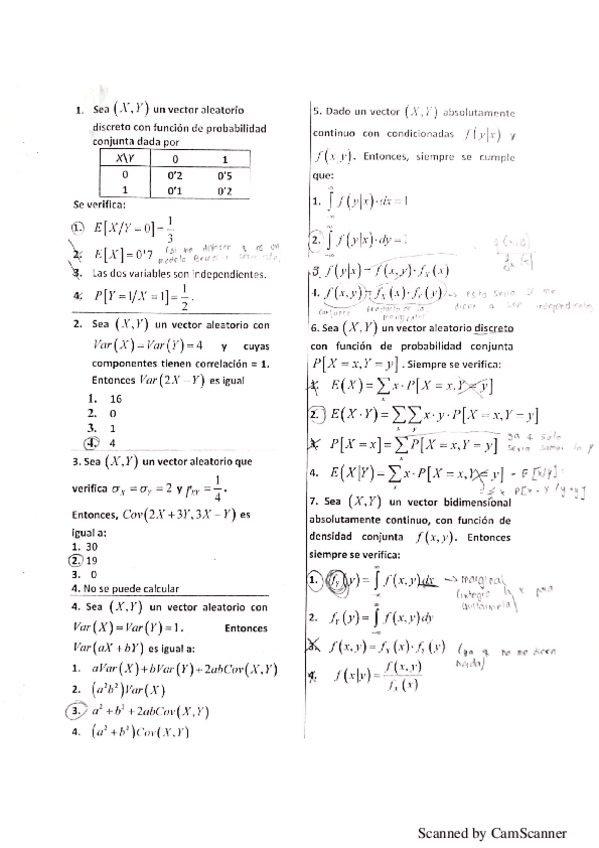 1. Sea (X,Y) un vector aleatorio
discreto con función de probabilidad
conjunta dada por
X\Y 0 1
0 0'2 0'5
1 0'1 0'2
Se verifica:
1. E[X/Y = 0] = 1/3
2. E[X] = 0'7
3. Las dos variables son independientes.
4. P[Y = 1/X = 1] = 1/2.
2. Sea (X,Y) un vector aleatorio con
Var(X) = Var(Y) = 4 y cuyas
componentes tienen correlación = 1.
Entonces Var(2X − Y) es igual
1. 16
2. 0
3. 1
4. 4
3. Sea (X,Y) un vector aleatorio que
verifica σX = σY = 2 y ρXY = 1/4.
Entonces, Cov(2X + 3Y, 3X − Y) es
igual a:
1. 30
2. 19
3. 0
4. No se puede calcular
4. Sea (X,Y) un vector aleatorio con
Var(X) = Var(Y) = 1. Entonces
Var(aX + bY) es igual a:
1. aVar(X) + bVar(Y) + 2abCov(X,Y)
2. (a²b²)Var(X)
3. a² + b² + 2abCov(X,Y)
4. (a² + b²)Cov(X,Y)
5. Dado un vector (X,Y) absolutamente
continuo con condicionadas f(y|x) y
f(x|y). Entonces, siempre se cumple
que:
1. ∫ f(y|x)·dx = 1
2. ∫ f(y|x)·dy = 1
3. f(y|x) = f(x,y)·fX(x)
4. f(x,y) = fX(x)·fY(y) → esto sería si me
conjunta
6. Sea (X,Y) un vector aleatorio discreto
con función de probabilidad conjunta
P[X = x, Y = y]. Siempre se verifica:
1. E(X) = ∑ x·P[X = x, Y = y]
2. E(X·Y) = ∑∑ x·y·P[X = x, Y = y]
3. P[X = x] = ∑ P[X = x, Y = y] ya q solo
4. E(X|Y) = ∑ x·P[X = x, Y = y]
7. Sea (X,Y) un vector bidimensional
absolutamente continuo, con función de
densidad conjunta f(x,y). Entonces
siempre se verifica:
1. fY(y) = ∫ f(x,y)dx → marginal
2. fY(y) = ∫ f(x,y)dy
3. f(x,y) = fX(x)·fY(y) (ya q no me dicen
nada)
4. f(x|y) = f(x,y)/fX(x)
Scanned by CamScanner